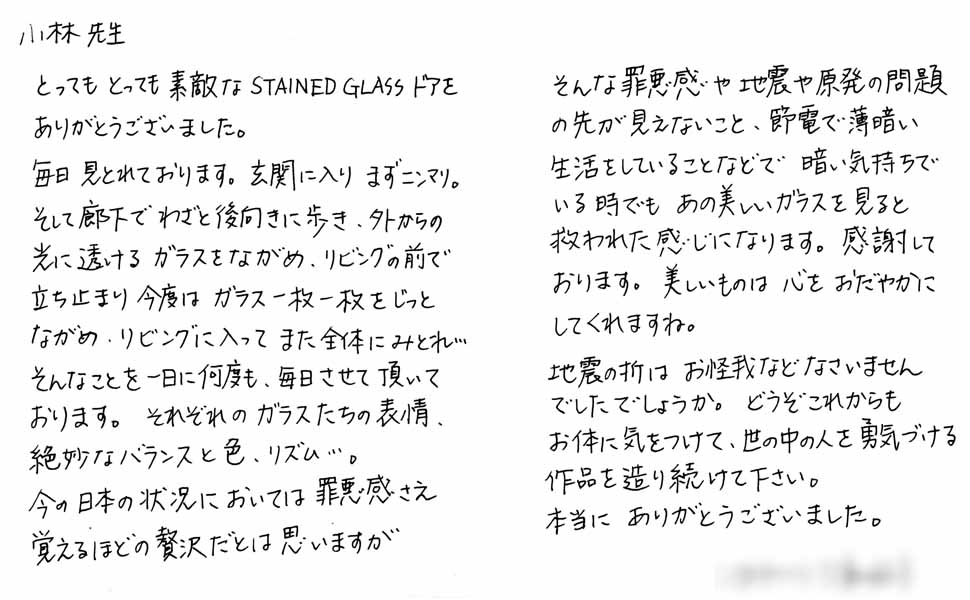 小林 先生
とっても とっても 素敵な STAINED GLASS ドアを
ありがとうございました。
毎日 見とれております。玄関に入り まずニンマリ。
そして廊下で わざと後向きに歩き、外からの
光に透ける ガラスをながめ、リビングの前で
立ち止まり 今度は ガラス一枚一枚をじっと
ながめ、リビングに入って また全体にみとれ…
そんなことを一日に何度も、毎日させて頂いて
おります。 それぞれの ガラスたちの表情、
絶妙なバランスと色、リズム…。
今の日本の状況においては 罪悪感さえ
覚えるほどの贅沢だとは 思いますが
そんな罪悪感や地震や原発の問題
の先が見えないこと、節電で薄暗い
生活をしていることなどで 暗い気持ちで
いる時でも あの美しいガラスを見ると
救われた感じになります。感謝して
おります。 美しいものは 心を おだやかに
してくれますね。
地震の折は お怪我などなさいません
でしたでしょうか。 どうぞこれからも
お体に気をつけて、世の中の人を勇気づける
作品を造り続けて下さい。
本当に ありがとうございました。